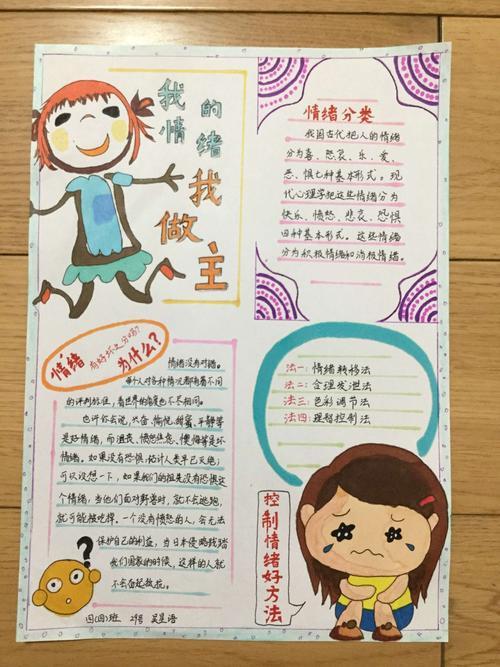 我的
情绪
我
做
主
情绪分类
我国古代把人的情绪
分为喜、怒哀、乐、爱、
恶、惧七种基本形式。现
代心理学把这些情绪分为
快乐、愤怒、悲哀、恐惧
四种基本形式。这些情绪
分为积极情绪和消极情绪。
情绪有好坏之分吗?
为什么?
情绪没有对错。
每个人对各种情况都有着不同
的评判标准,看世界的角度也不尽相同。
也许你会说,兴奋、愉悦、甜蜜、平静等
是好情绪,而沮丧、愤怒焦虑、懊悔等是坏
情绪。如果没有恐惧,估计人类早已灭绝;
可以设想一下,如果我们的祖先没有恐惧这
个情绪,当他们面对野兽时,就不会逃跑,
就可能被吃掉。一个没有愤怒的人,会无法
保护自己的利益,当日本侵略践踏
我们国家的时候,这样的人就
不会奋起救抗。
?
四(四)班 29号 吴昱语
法一:情绪转移法
法二:合理发泄法
法三:色彩调节法
法四:理智控制法
控制情绪好方法